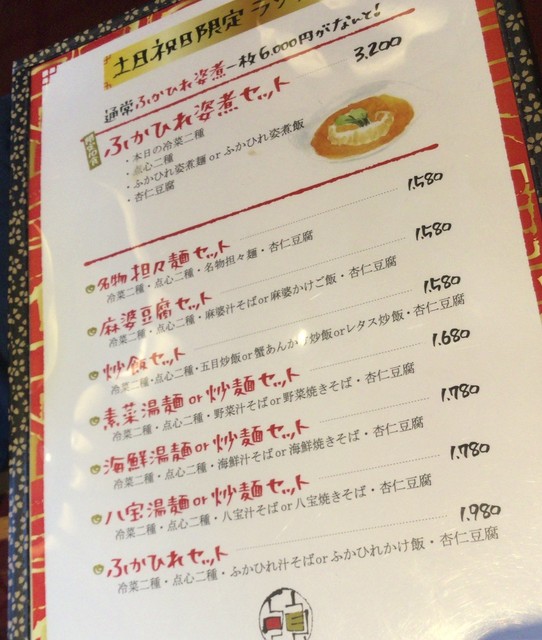 土日祝日限定
通常ふかひれ姿煮一枚6,000円がなんと!
ふかひれ姿煮セット 3,200
・本日の冷菜二種
・点心二種
・ふかひれ姿煮麺 or ふかひれ姿煮飯
・杏仁豆腐
名物担々麺セット 1,580
冷菜二種・点心二種・名物担々麺・杏仁豆腐
麻婆豆腐セット 1,580
冷菜二種・点心二種・麻婆汁そばor麻婆かけご飯・杏仁豆腐
炒飯セット 1,580
冷菜二種・点心二種・五目炒飯or蟹あんかけ炒飯orレタス炒飯・杏仁豆腐
素菜湯麺or炒麺セット 1,680
冷菜二種・点心二種・野菜汁そばor野菜焼きそば・杏仁豆腐
海鮮湯麺or炒麺セット 1,780
冷菜二種・点心二種・海鮮汁そばor海鮮焼きそば・杏仁豆腐
八宝湯麺or炒麺セット 1,780
冷菜二種・点心二種・八宝汁そばor八宝焼きそば・杏仁豆腐
ふかひれセット 1,980
冷菜二種・点心二種・ふかひれ汁そばorふかひれかけ飯・杏仁豆腐